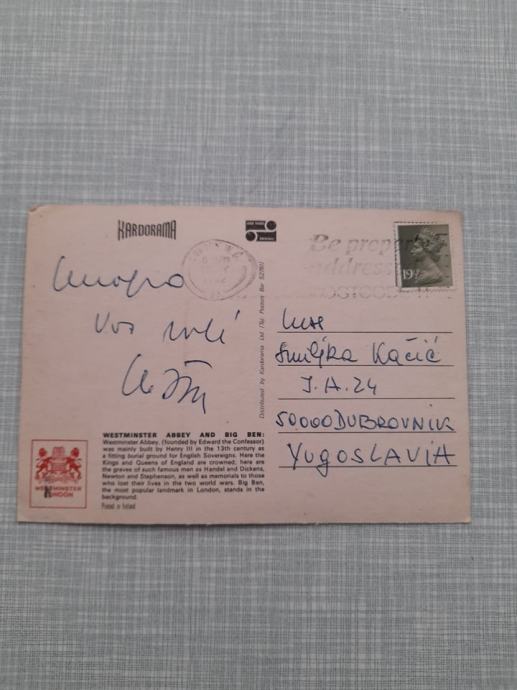 KARDORAMA
Be prepar
address
POSTCODE
19½
Vas voli
Smiljka Kačić
I.A.24
50000 DUBROVNIK
YUGOSLAVIA
Distributed by Kardorama Ltd (Tel. Potters Bar 52781)
WESTMINSTER ABBEY AND BIG BEN:
Westminster Abbey, (founded by Edward the Confessor)
was mainly built by Henry III in the 13th century as
a fitting burial ground for English Sovereigns. Here the
Kings and Queens of England are crowned; here are
the graves of such famous men as Handel and Dickens,
Newton and Stephenson, as well as memorials to those
who lost their lives in the two world wars. Big Ben,
the most popular landmark in London, stands in the
background.
Printed in Ireland
WESTMINSTER
LONDON